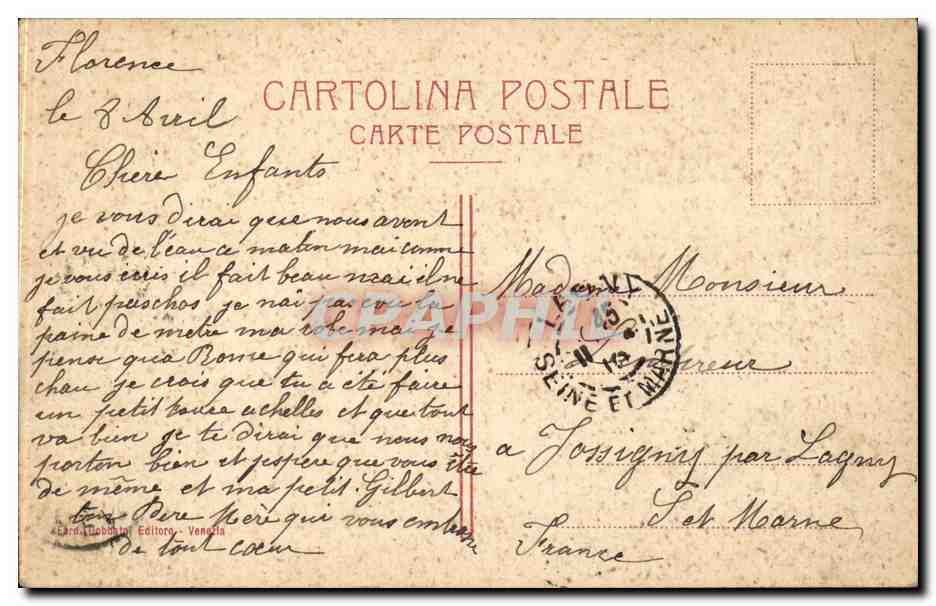 Florence
le 8 Avril
CARTOLINA POSTALE
CARTE POSTALE
Chere Enfants
je vous dirai que nous avont
et vu de l'eau a matin mai comme
je vous ecris il fait beau mai il ne
fait pas chos je nai pas eu la
paine de metre ma robe mai je
pense qua Rome qui fera plus
chau je crois que tu a ete faire
un petit tour a chelles et que tout
va bien je te dirai que nous nous
porton bien et jespere que vous ête
de même et ma petit Gilbert
ton Pere Mère qui vous embrasse
de tout cœur
Ferd. Gobbato, Editore - Venezia
Madame Monsieur
a Jossigny par Lagny
S et Marne
France
SEINE ET MARNE
45
11
CPAPHIL